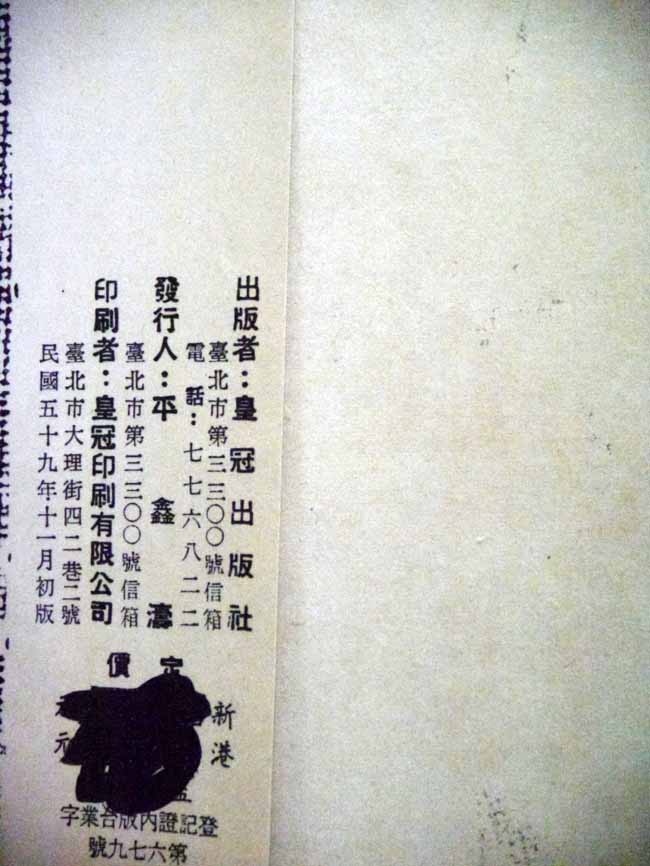 出版者：皇冠出版社
臺北市第三三〇〇號信箱
電話：七七六八二二
發行人：平鑫濤
臺北市第三三〇〇號信箱
印刷者：皇冠印刷有限公司
臺北市大理街四二巷二號
民國五十九年十一月初版
定價
新
港
元
登記證內版台業字
第六七九號